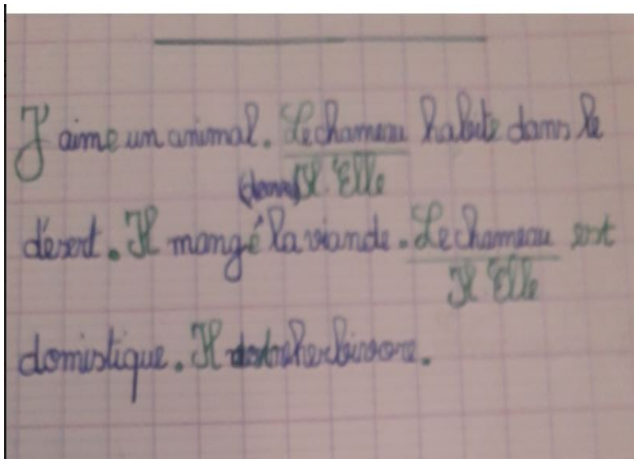 J'aime un animal. Le chameau habite dans le
Il Elle
désert. Il mangé la viande. Le chameau est
Il Elle
domistique. Il herbivore.